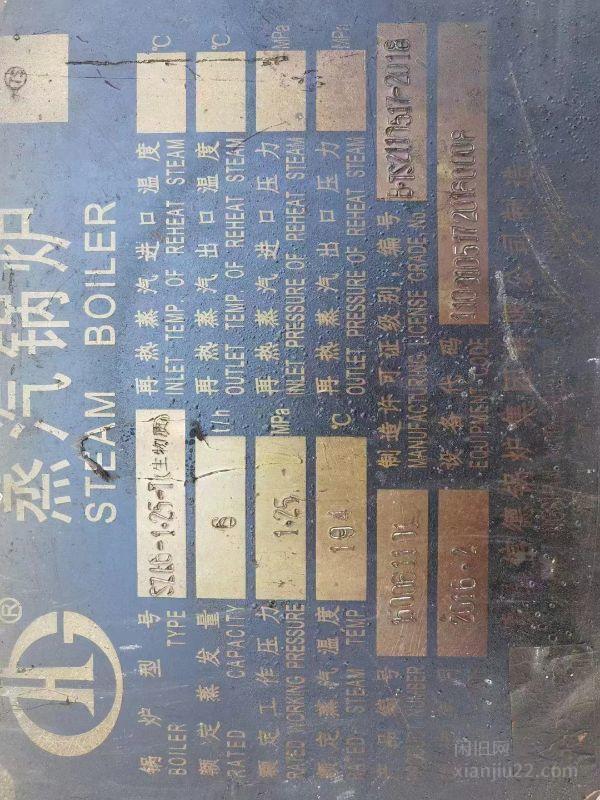 蒸汽锅炉
STEAM BOILER
®
锅炉型号
BOILER TYPE
额定蒸发量
RATED CAPACITY
6
t/h
额定工作压力
RATED WORKING PRESSURE
1.25
MPa
额定蒸汽温度
RATED STEAM TEMP
194
℃
产品编号
NUMBER
2016.2
再热蒸汽进口温度
INLET TEMP OF REHEAT STEAM
℃
再热蒸汽出口温度
OUTLET TEMP OF REHEAT STEAM
℃
再热蒸汽进口压力
INLET PRESSURE OF REHEAT STEAM
MPa
再热蒸汽出口压力
OUTLET PRESSURE OF REHEAT STEAM
MPa
制造许可证级别,编号
MANUFACTURING LICENSE GRADE.No
设备代码
EQUIPMENT CODE
锅炉集团有限公司制造
闲旧网
xianjiu22.com